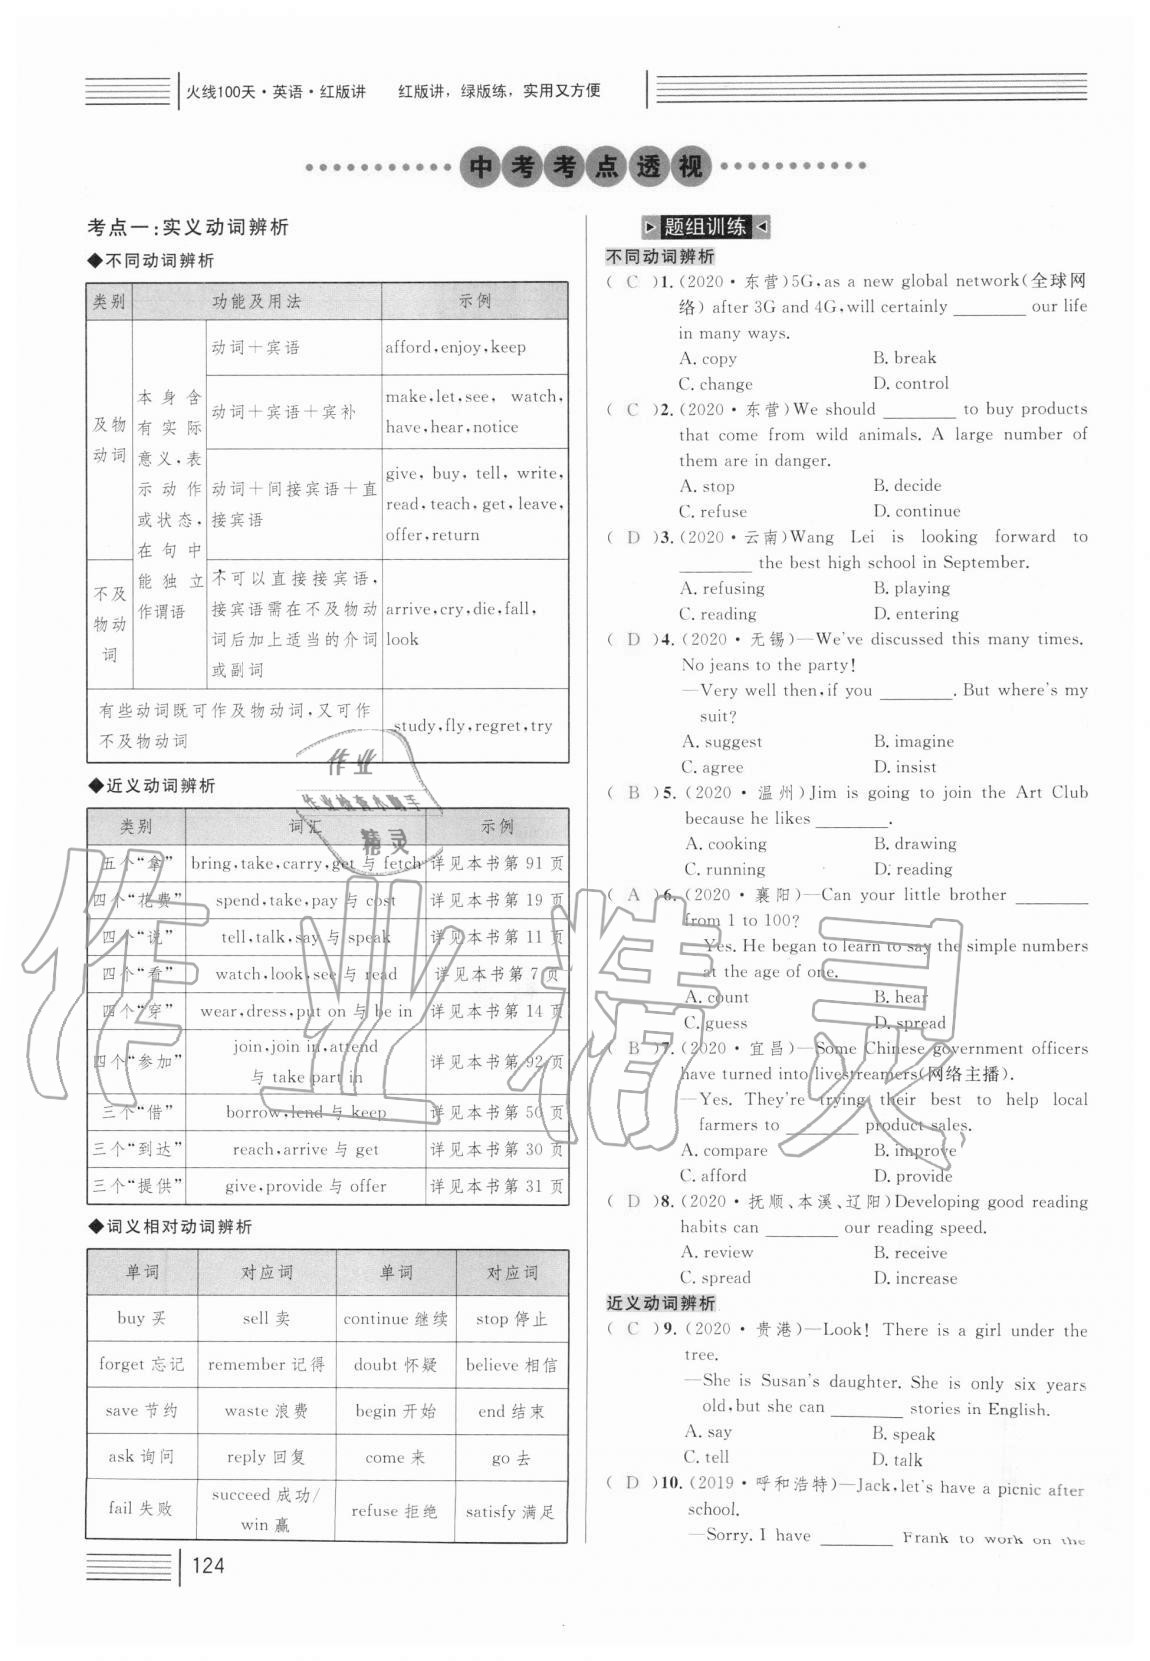 火线100天·英语·红版讲　红版讲,绿版练,实用又方便
中考考点透视
考点一:实义动词辨析
◆不同动词辨析
类别 功能及用法 示例
及物动词
本身含有实际意义,表示动作或状态,在句中能独立作谓语
动词+宾语
afford,enjoy,keep
动词+宾语+宾补
make,let,see, watch,
have,hear,notice
动词+间接宾语+直
接宾语
give, buy, tell, write,
read,teach,get,leave,
offer,return
不及物动词
不可以直接接宾语,
接宾语需在不及物动
词后加上适当的介词
或副词
arrive,cry,die,fall,
look
有些动词既可作及物动词,又可作
不及物动词
study,fly,regret,try
◆近义动词辨析
类别 词汇 示例
五个“拿” bring,take,carry,get 与 fetch 详见本书第 91 页
四个“花费” spend,take,pay 与 cost 详见本书第 19 页
四个“说” tell,talk,say 与 speak 详见本书第 11 页
四个“看” watch,look,see 与 read 详见本书第 7 页
四个“穿” wear,dress,put on 与 be in 详见本书第 14 页
四个“参加” join,join in,attend
与 take part in 详见本书第 92 页
三个“借” borrow,lend 与 keep 详见本书第 50 页
三个“到达” reach,arrive 与 get 详见本书第 30 页
三个“提供” give,provide 与 offer 详见本书第 31 页
◆词义相对动词辨析
单词 对应词 单词 对应词
buy 买 sell 卖 continue 继续 stop 停止
forget 忘记 remember 记得 doubt 怀疑 believe 相信
save 节约 waste 浪费 begin 开始 end 结束
ask 询问 reply 回复 come 来 go 去
fail 失败 succeed 成功/
win 赢 refuse 拒绝 satisfy 满足
124
题组训练
不同动词辨析
( C )1.(2020·东营)5G,as a new global network(全球网
络) after 3G and 4G,will certainly ________ our life
in many ways.
A. copy B. break
C. change D. control
( C )2.(2020·东营)We should ________ to buy products
that come from wild animals. A large number of
them are in danger.
A. stop B. decide
C. refuse D. continue
( D )3.(2020·云南)Wang Lei is looking forward to
________ the best high school in September.
A. refusing B. playing
C. reading D. entering
( D )4.(2020·无锡)—We've discussed this many times.
No jeans to the party!
—Very well then,if you ________. But where's my
suit?
A. suggest B. imagine
C. agree D. insist
( B )5.(2020·温州)Jim is going to join the Art Club
because he likes ________.
A. cooking B. drawing
C. running D. reading
( A )6.(2020·襄阳)—Can your little brother ________
from 1 to 100?
—Yes. He began to learn to say the simple numbers
at the age of one.
A. count B. hear
C. guess D. spread
( B )7.(2020·宜昌)—Some Chinese government officers
have turned into livestreamers(网络主播).
—Yes. They're trying their best to help local
farmers to ________ product sales.
A. compare B. improve
C. afford D. provide
( D )8.(2020·抚顺、本溪、辽阳)Developing good reading
habits can ________ our reading speed.
A. review B. receive
C. spread D. increase
近义动词辨析
( C )9.(2020·贵港)—Look! There is a girl under the
tree.
—She is Susan's daughter. She is only six years
old,but she can ________ stories in English.
A. say B. speak
C. tell D. talk
( D )10.(2019·呼和浩特)—Jack,let's have a picnic after
school.
—Sorry. I have ________ Frank to work on the
作业
作业检查小助手
精灵
作业精灵